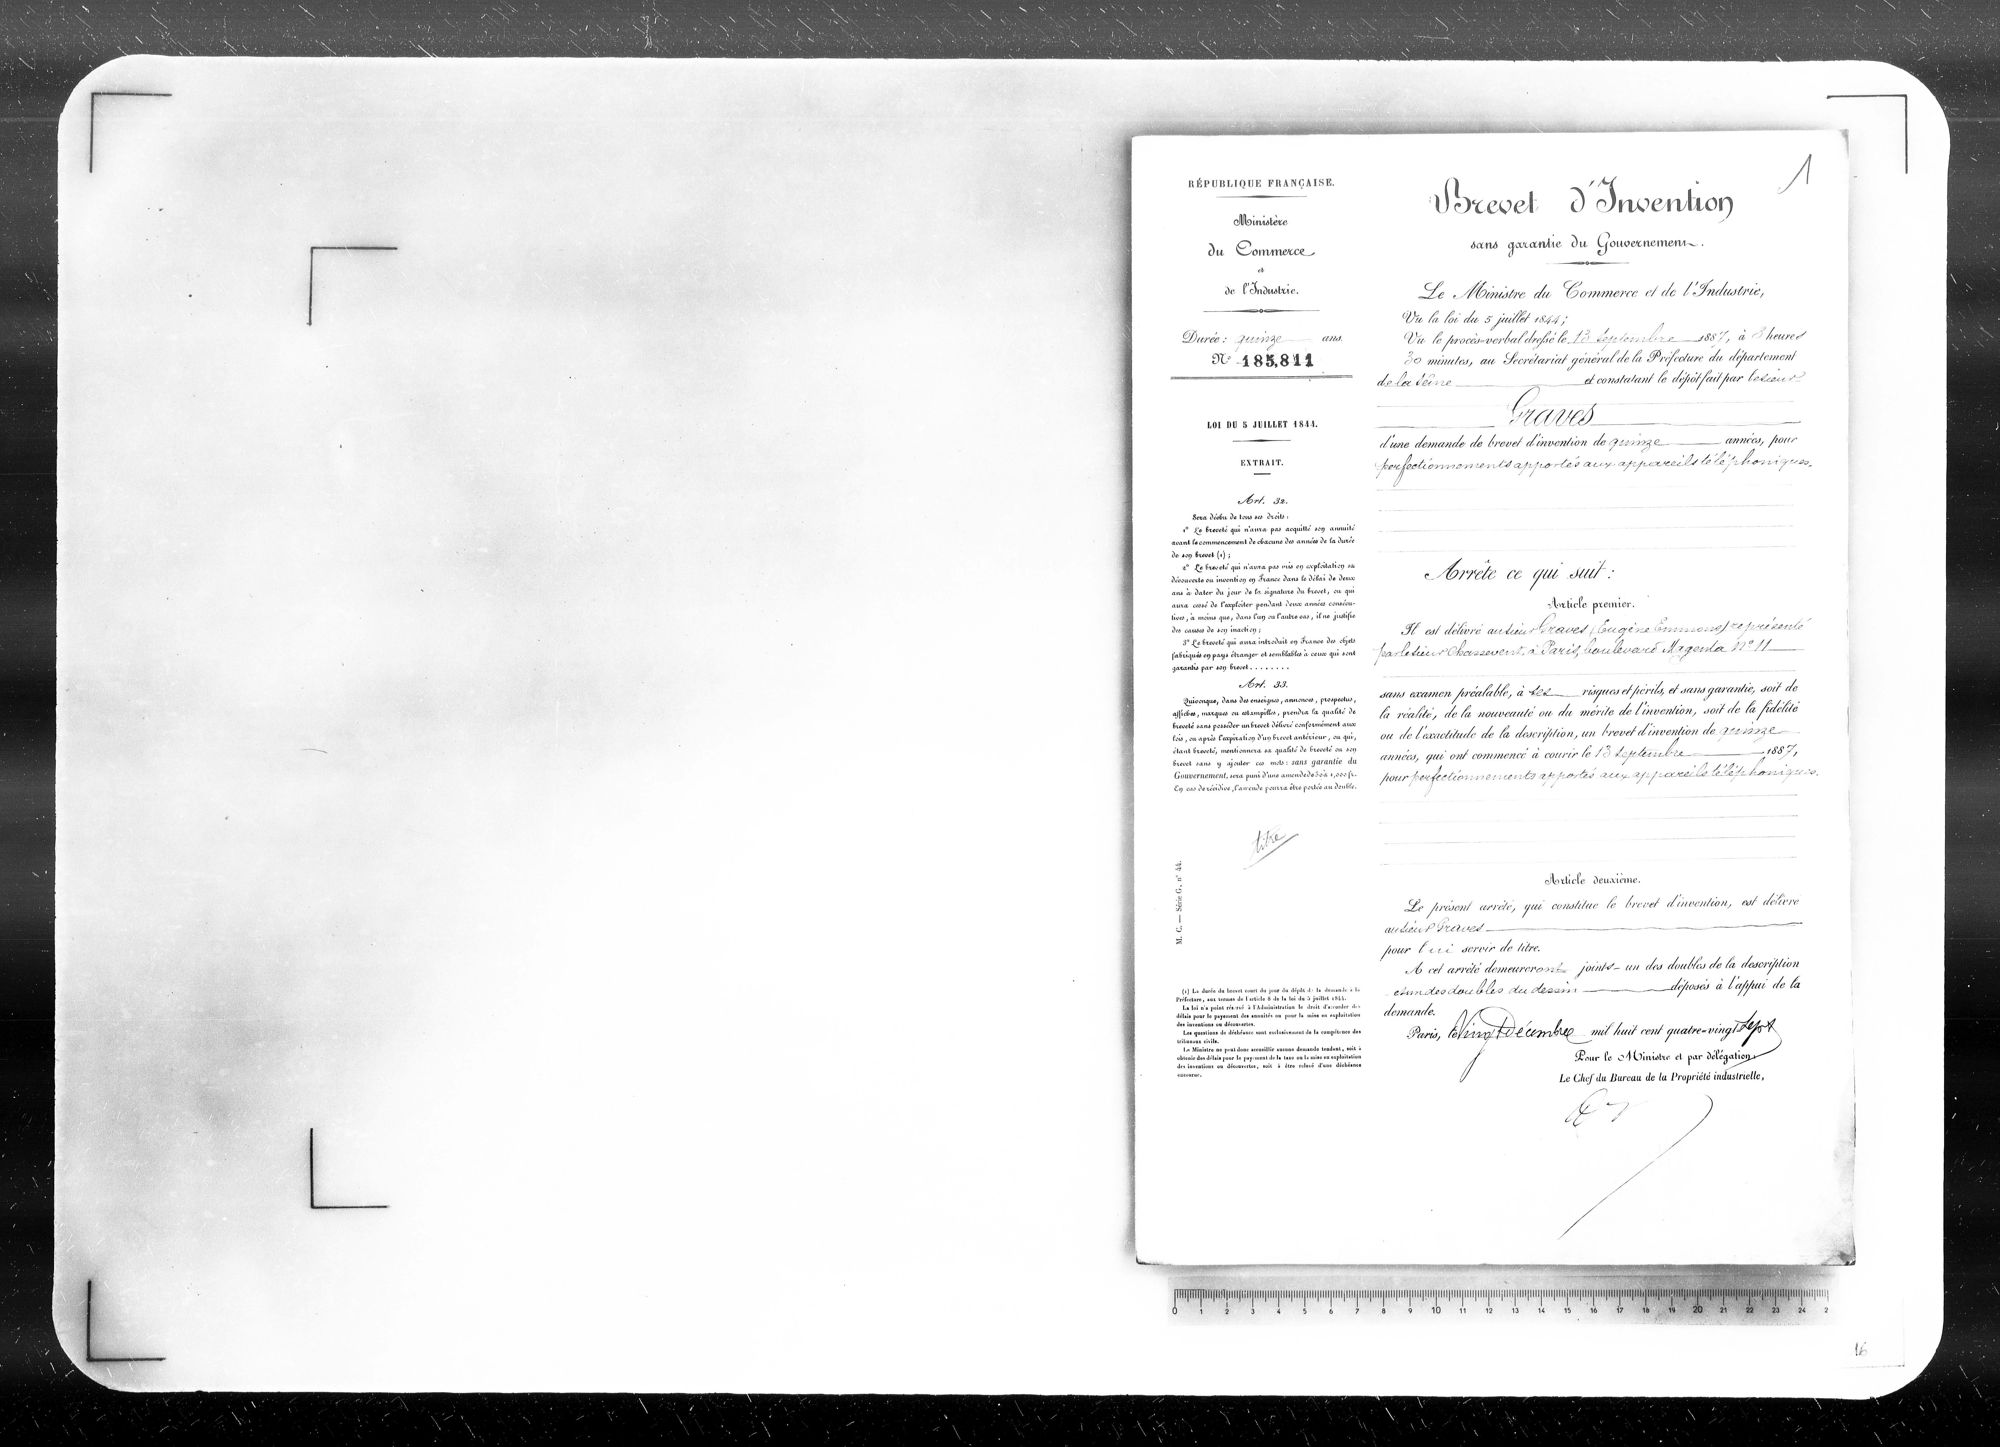 RÉPUBLIQUE FRANÇAISE.
Ministère
du Commerce
et
de l'Industrie.
Durée : quinze ans.
N° 185,811
LOI DU 5 JUILLET 1844.
EXTRAIT.
Art. 32.
Sera déchu de tous ses droits :
1° Le breveté qui n'aura pas acquitté son annuité
avant le commencement de chacune des années de la durée
de son brevet (1) ;
2° Le breveté qui n'aura pas mis en exploitation sa
découverte ou invention en France dans le délai de deux
ans à dater du jour de la signature du brevet, ou qui
aura cessé de l'exploiter pendant deux années consécu-
tives, à moins que, dans l'un ou l'autre cas, il ne justifie
des causes de son inaction ;
3° Le breveté qui aura introduit en France des objets
fabriqués en pays étranger et semblables à ceux qui sont
garantis par son brevet........
Art. 33.
Quiconque, dans des enseignes, annonces, prospectus,
affiches, marques ou estampilles, prendra la qualité de
breveté sans posséder un brevet délivré conformément aux
lois, ou après l'expiration d'un brevet antérieur, ou qui,
étant breveté, mentionnera sa qualité de breveté ou son
brevet sans y ajouter ces mots : sans garantie du
Gouvernement, sera puni d'une amende de 50 à 1,000 fr.
En cas de récidive, l'amende pourra être portée au double.
titre
M. C. — Série G, n° 44.
(1) La durée du brevet court du jour du dépôt de la demande à la
Préfecture, aux termes de l'article 8 de la loi du 5 juillet 1844.
La loi n'a point réservé à l'Administration le droit d'accorder des
délais pour le payement des annuités ou pour la mise en exploitation
des inventions ou découvertes.
Les questions de déchéance sont exclusivement de la compétence des
tribunaux civils.
Le Ministre ne peut donc accueillir aucune demande tendant, soit à
obtenir des délais pour le payement de la taxe ou la mise en exploitation
des inventions ou découvertes, soit à être relevé d'une déchéance
encourue.
1
Brevet d'Invention
sans garantie du Gouvernement.
Le Ministre du Commerce et de l'Industrie,
Vu la loi du 5 juillet 1844 ;
Vu le procès-verbal dressé le 13 septembre 1887, à 3 heures
30 minutes, au Secrétariat général de la Préfecture du département
de la Seine et constatant le dépôt fait par le sieur
Graves
d'une demande de brevet d'invention de quinze années, pour
perfectionnements apportés aux appareils téléphoniques.
Arrête ce qui suit :
Article premier.
Il est délivré au sieur Graves (Eugène Emmons) représenté
par le sieur Chassevent, à Paris, boulevard Magenta N° 11
sans examen préalable, à ses risques et périls, et sans garantie, soit de
la réalité, de la nouveauté ou du mérite de l'invention, soit de la fidélité
ou de l'exactitude de la description, un brevet d'invention de quinze
années, qui ont commencé à courir le 13 septembre 1887,
pour perfectionnements apportés aux appareils téléphoniques.
Article deuxième.
Le présent arrêté, qui constitue le brevet d'invention, est délivré
au sieur Graves
pour lui servir de titre.
A cet arrêté demeureront joints un des doubles de la description
et un des doubles du dessin déposés à l'appui de la
demande.
Paris, le Vingt Décembre mil huit cent quatre-vingt Sept
Pour le Ministre et par délégation :
Le Chef du Bureau de la Propriété industrielle,
0 1 2 3 4 5 6 7 8 9 10 11 12 13 14 15 16 17 18 19 20 21 22 23 24 2
16